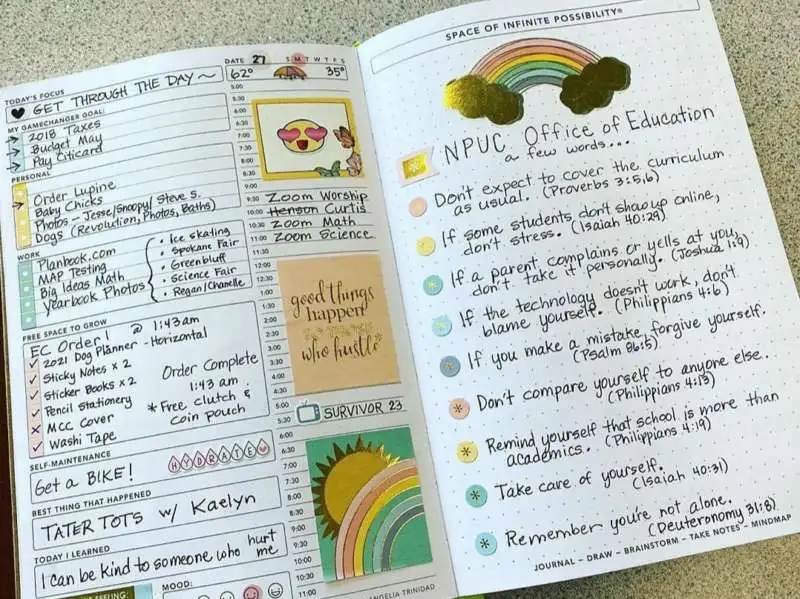 DATE 27 S M T W T F S
TODAY'S FOCUS
62° 35°
GET THROUGH THE DAY ~
MY GAMECHANGER GOAL:
2018 Taxes
Budget May
Pay Citicard
PERSONAL
Order Lupine
Baby Chicks
Photos - Jesse/Snoopy/Steve S.
Dogs (Revolution, Photos, Baths)
WORK
Planbook.com
MAP Testing
Big Ideas Math
Yearbook Photos
• Ice skating
• Spokane Fair
• Greenbluff
• Science Fair
• Regan/Chanelle
FREE SPACE TO GROW
EC Order! @ 1:43am
✓ 2021 Dog Planner - Horizontal
✓ Sticky Notes x 2
✓ Sticker Books x 2
✓ Pencil Stationery
x MCC Cover
✓ Washi Tape
Order Complete
1:43 am
* Free clutch &
coin pouch
SELF-MAINTENANCE
HYDRATE
Get a BIKE!
BEST THING THAT HAPPENED
TATER TOTS w/ Kaelyn
TODAY I LEARNED
I can be kind to someone who hurt
me
FEELING:
MOOD:
5:00
5:30
6:00
6:30
7:00
7:30
8:00
8:30
9:00
9:30 Zoom Worship
10:00 Henson Curtis
10:30 Zoom Math
11:00 Zoom Science
11:30
12:00
12:30
1:00
1:30
2:00
2:30
3:00
3:30
4:00
4:30
5:00
5:30 SURVIVOR 23
6:00
6:30
7:00
7:30
8:00
8:30
9:00
9:30
10:00
10:30
11:00
good things
happen
who hustle
ANGELIA TRINIDAD
SPACE OF INFINITE POSSIBILITY®
NPUC Office of Education
a few words...
Don't expect to cover the curriculum
as usual. (Proverbs 3:5,6)
If some students don't show up online,
don't stress. (Isaiah 40:29)
If a parent complains or yells at you,
don't take it personally. (Joshua 1:9)
If the technology doesn't work, don't
blame yourself. (Philippians 4:6)
If you make a mistake, forgive yourself.
(Psalm 86:5)
Don't compare yourself to anyone else..
(Philippians 4:13)
Remind yourself that school is more than
academics. (Philippians 4:19)
Take care of yourself.
(Isaiah 40:31)
Remember you're not alone.
(Deuteronomy 31:8)
JOURNAL – DRAW – BRAINSTORM – TAKE NOTES – MINDMAP